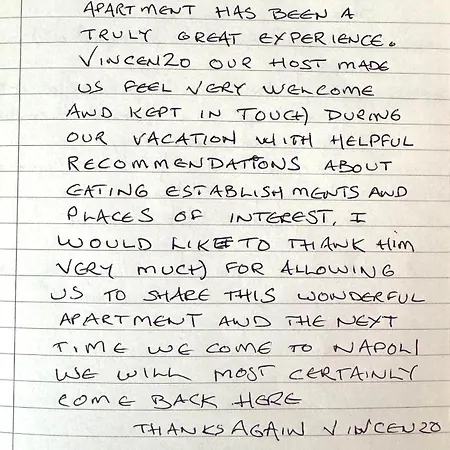 APARTMENT HAS BEEN A
TRULY GREAT EXPERIENCE.
VINCENZO OUR HOST MADE
US FEEL VERY WELCOME
AND KEPT IN TOUCH DURING
OUR VACATION WITH HELPFUL
RECOMMENDATIONS ABOUT
EATING ESTABLISHMENTS AND
PLACES OF INTEREST, I
WOULD LIKE TO THANK HIM
VERY MUCH FOR ALLOWING
US TO SHARE THIS WONDERFUL
APARTMENT AND THE NEXT
TIME WE COME TO NAPOLI
WE WILL MOST CERTAINLY
COME BACK HERE
THANKS AGAIN VINCENZO